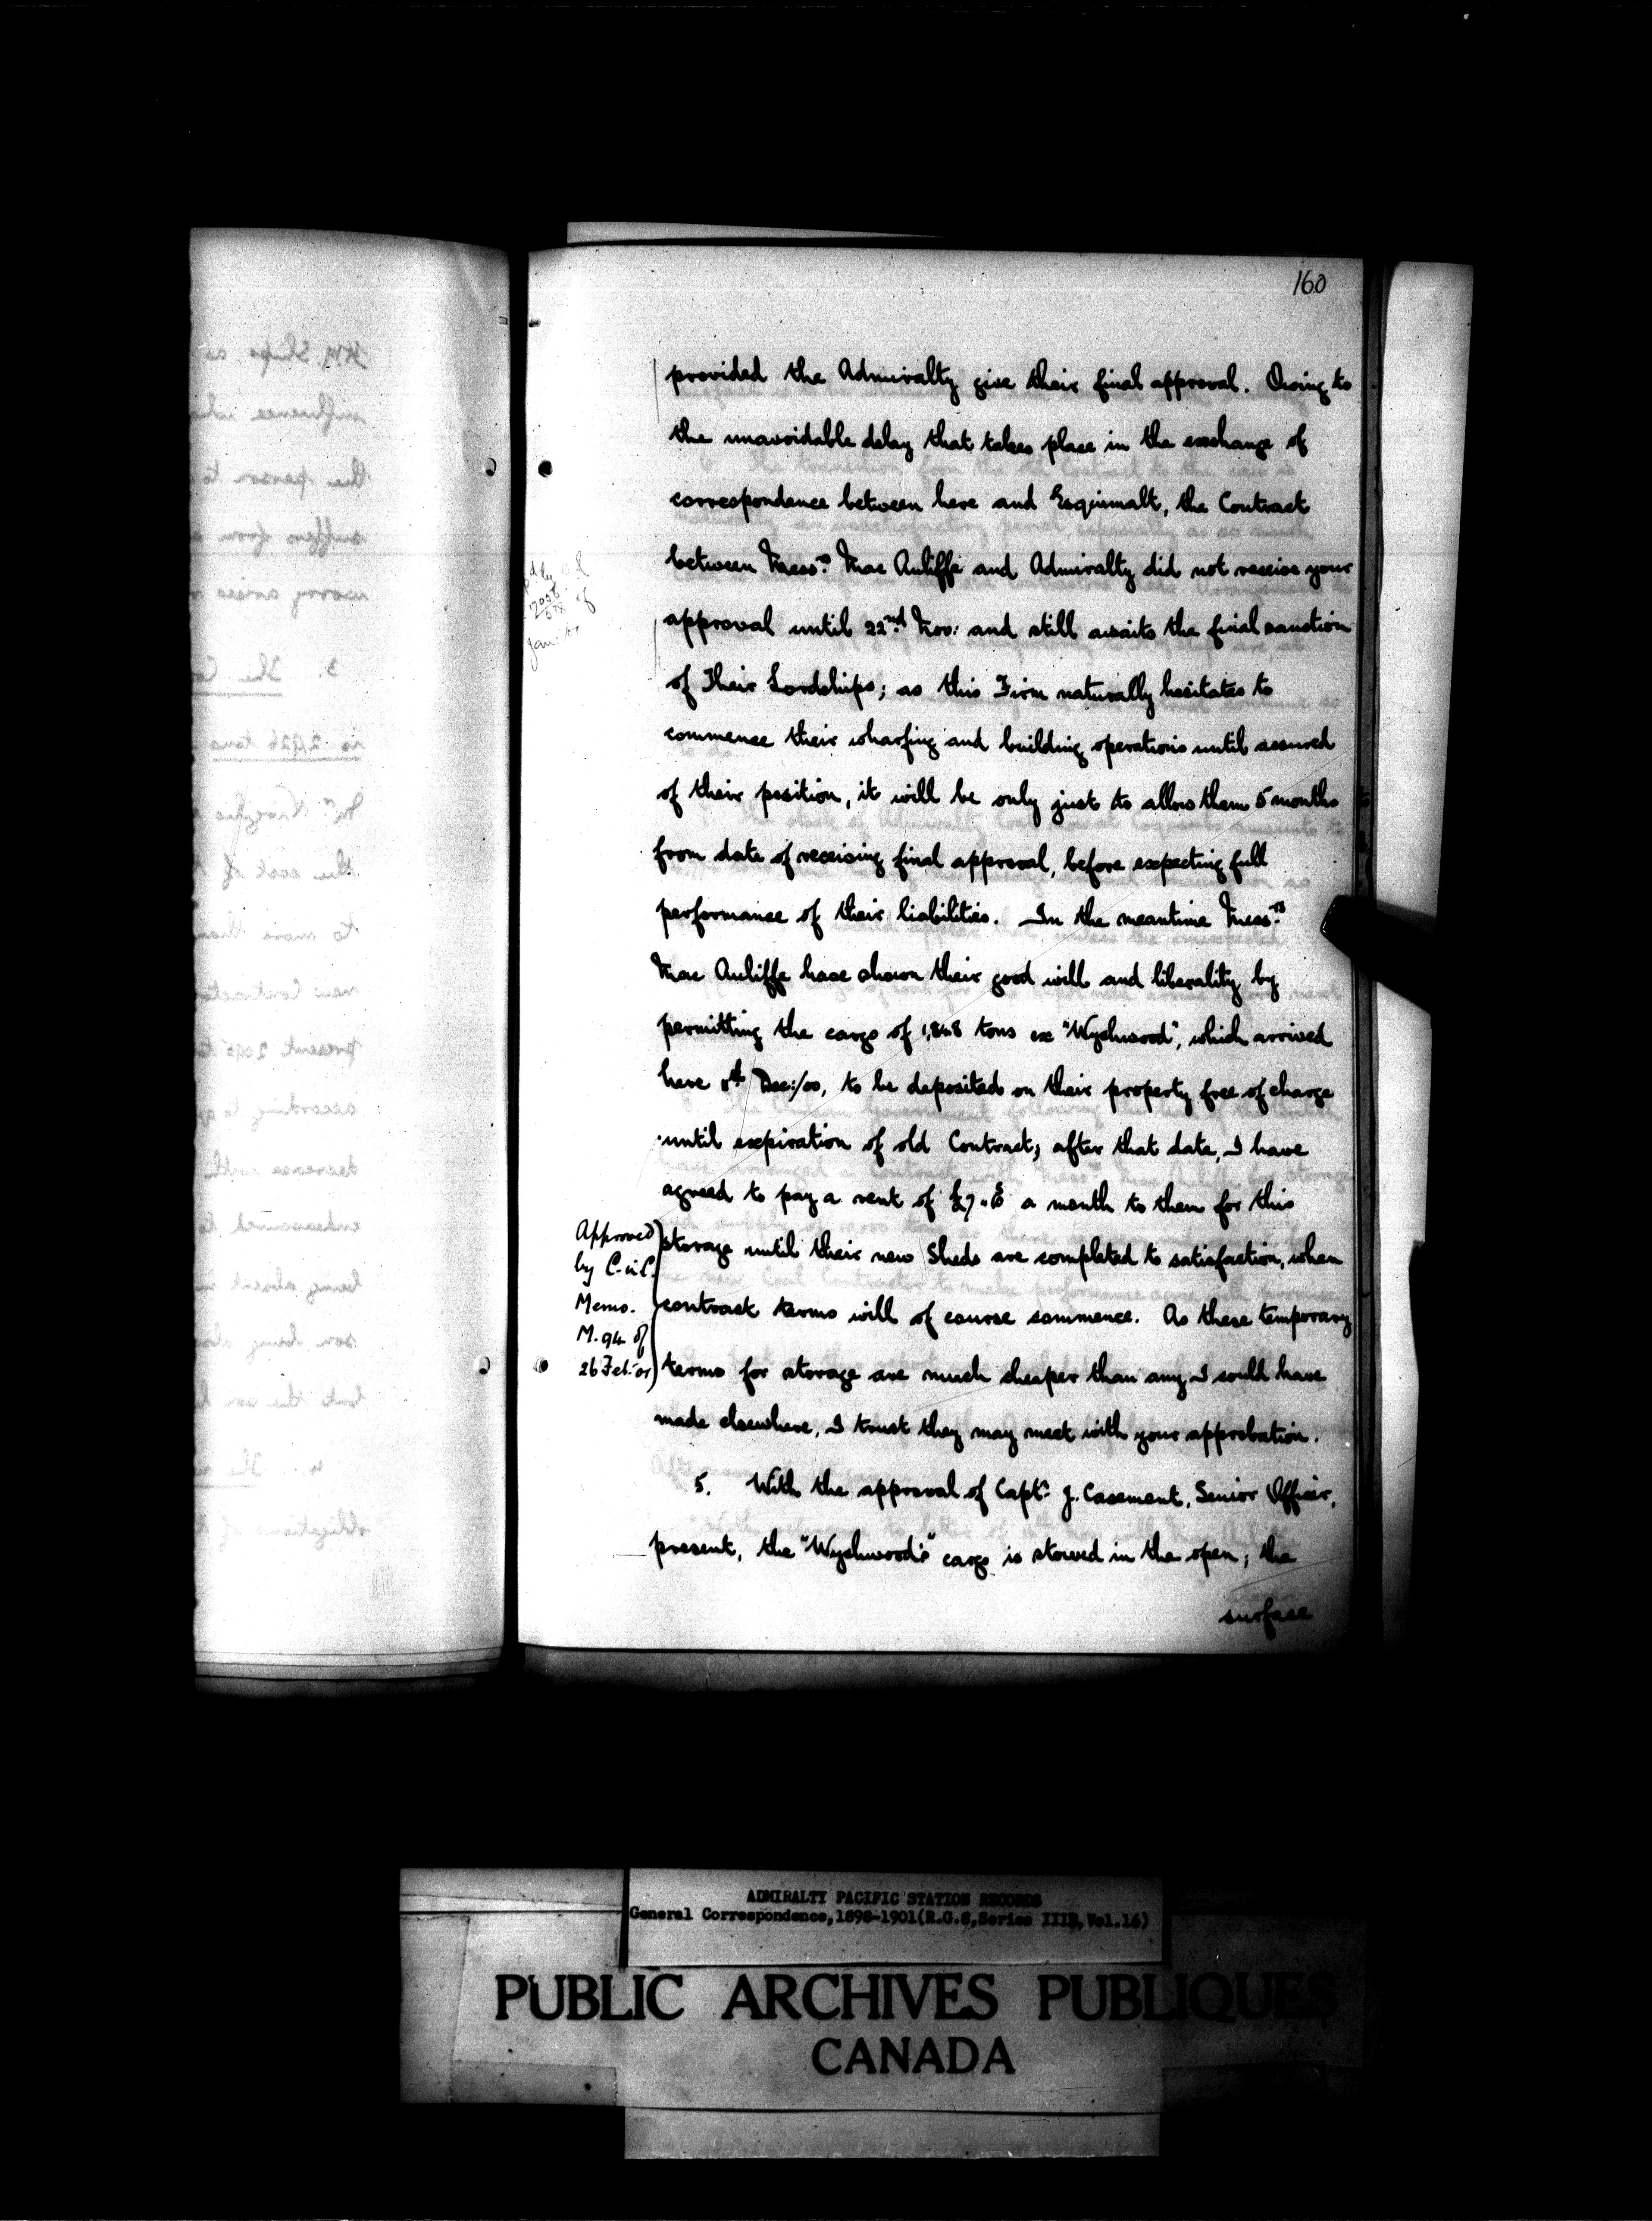 160
provided the Admiralty give their final approval. Owing to
the unavoidable delay that takes place in the exchange of
correspondence between here and Esquimalt, the Contract
between Mess.rs Mac Auliffe and Admiralty did not receive your
approval until 22nd Nov: and still awaits the final sanction
of Their Lordships; as this Firm naturally hesitates to
commence their wharfing and building operations until assured
of their position, it will be only just to allow them 5 months
from date of receiving final approval, before expecting full
performance of their liabilities. In the meantime Mess.rs
Mac Auliffe have shown their good will and liberality by
permitting the cargo of 1,848 tons ex "Wychwood", which arrived
here Dec:/00, to be deposited on their property free of charge
until expiration of old Contract; after that date, I have
agreed to pay a rent of a month to them for this
storage until their new Sheds are completed to satisfaction, when
contract terms will of course commence. As these temporary
terms for storage are much cheaper than any I could have
made elsewhere, I trust they may meet with your approbation.
Approved
by C-in-C.
Memo.
M. 94 of
26 Feb: 01
5. With the approval of Capt.n J. Casement, Senior Officer,
present, the "Wychwood's" cargo is stowed in the open; the
surface
ADMIRALTY PACIFIC STATION RECORDS
General Correspondence, 1898-1901(R.G.8, Series IIIB, Vol.16)
PUBLIC ARCHIVES PUBLIQUES
CANADA